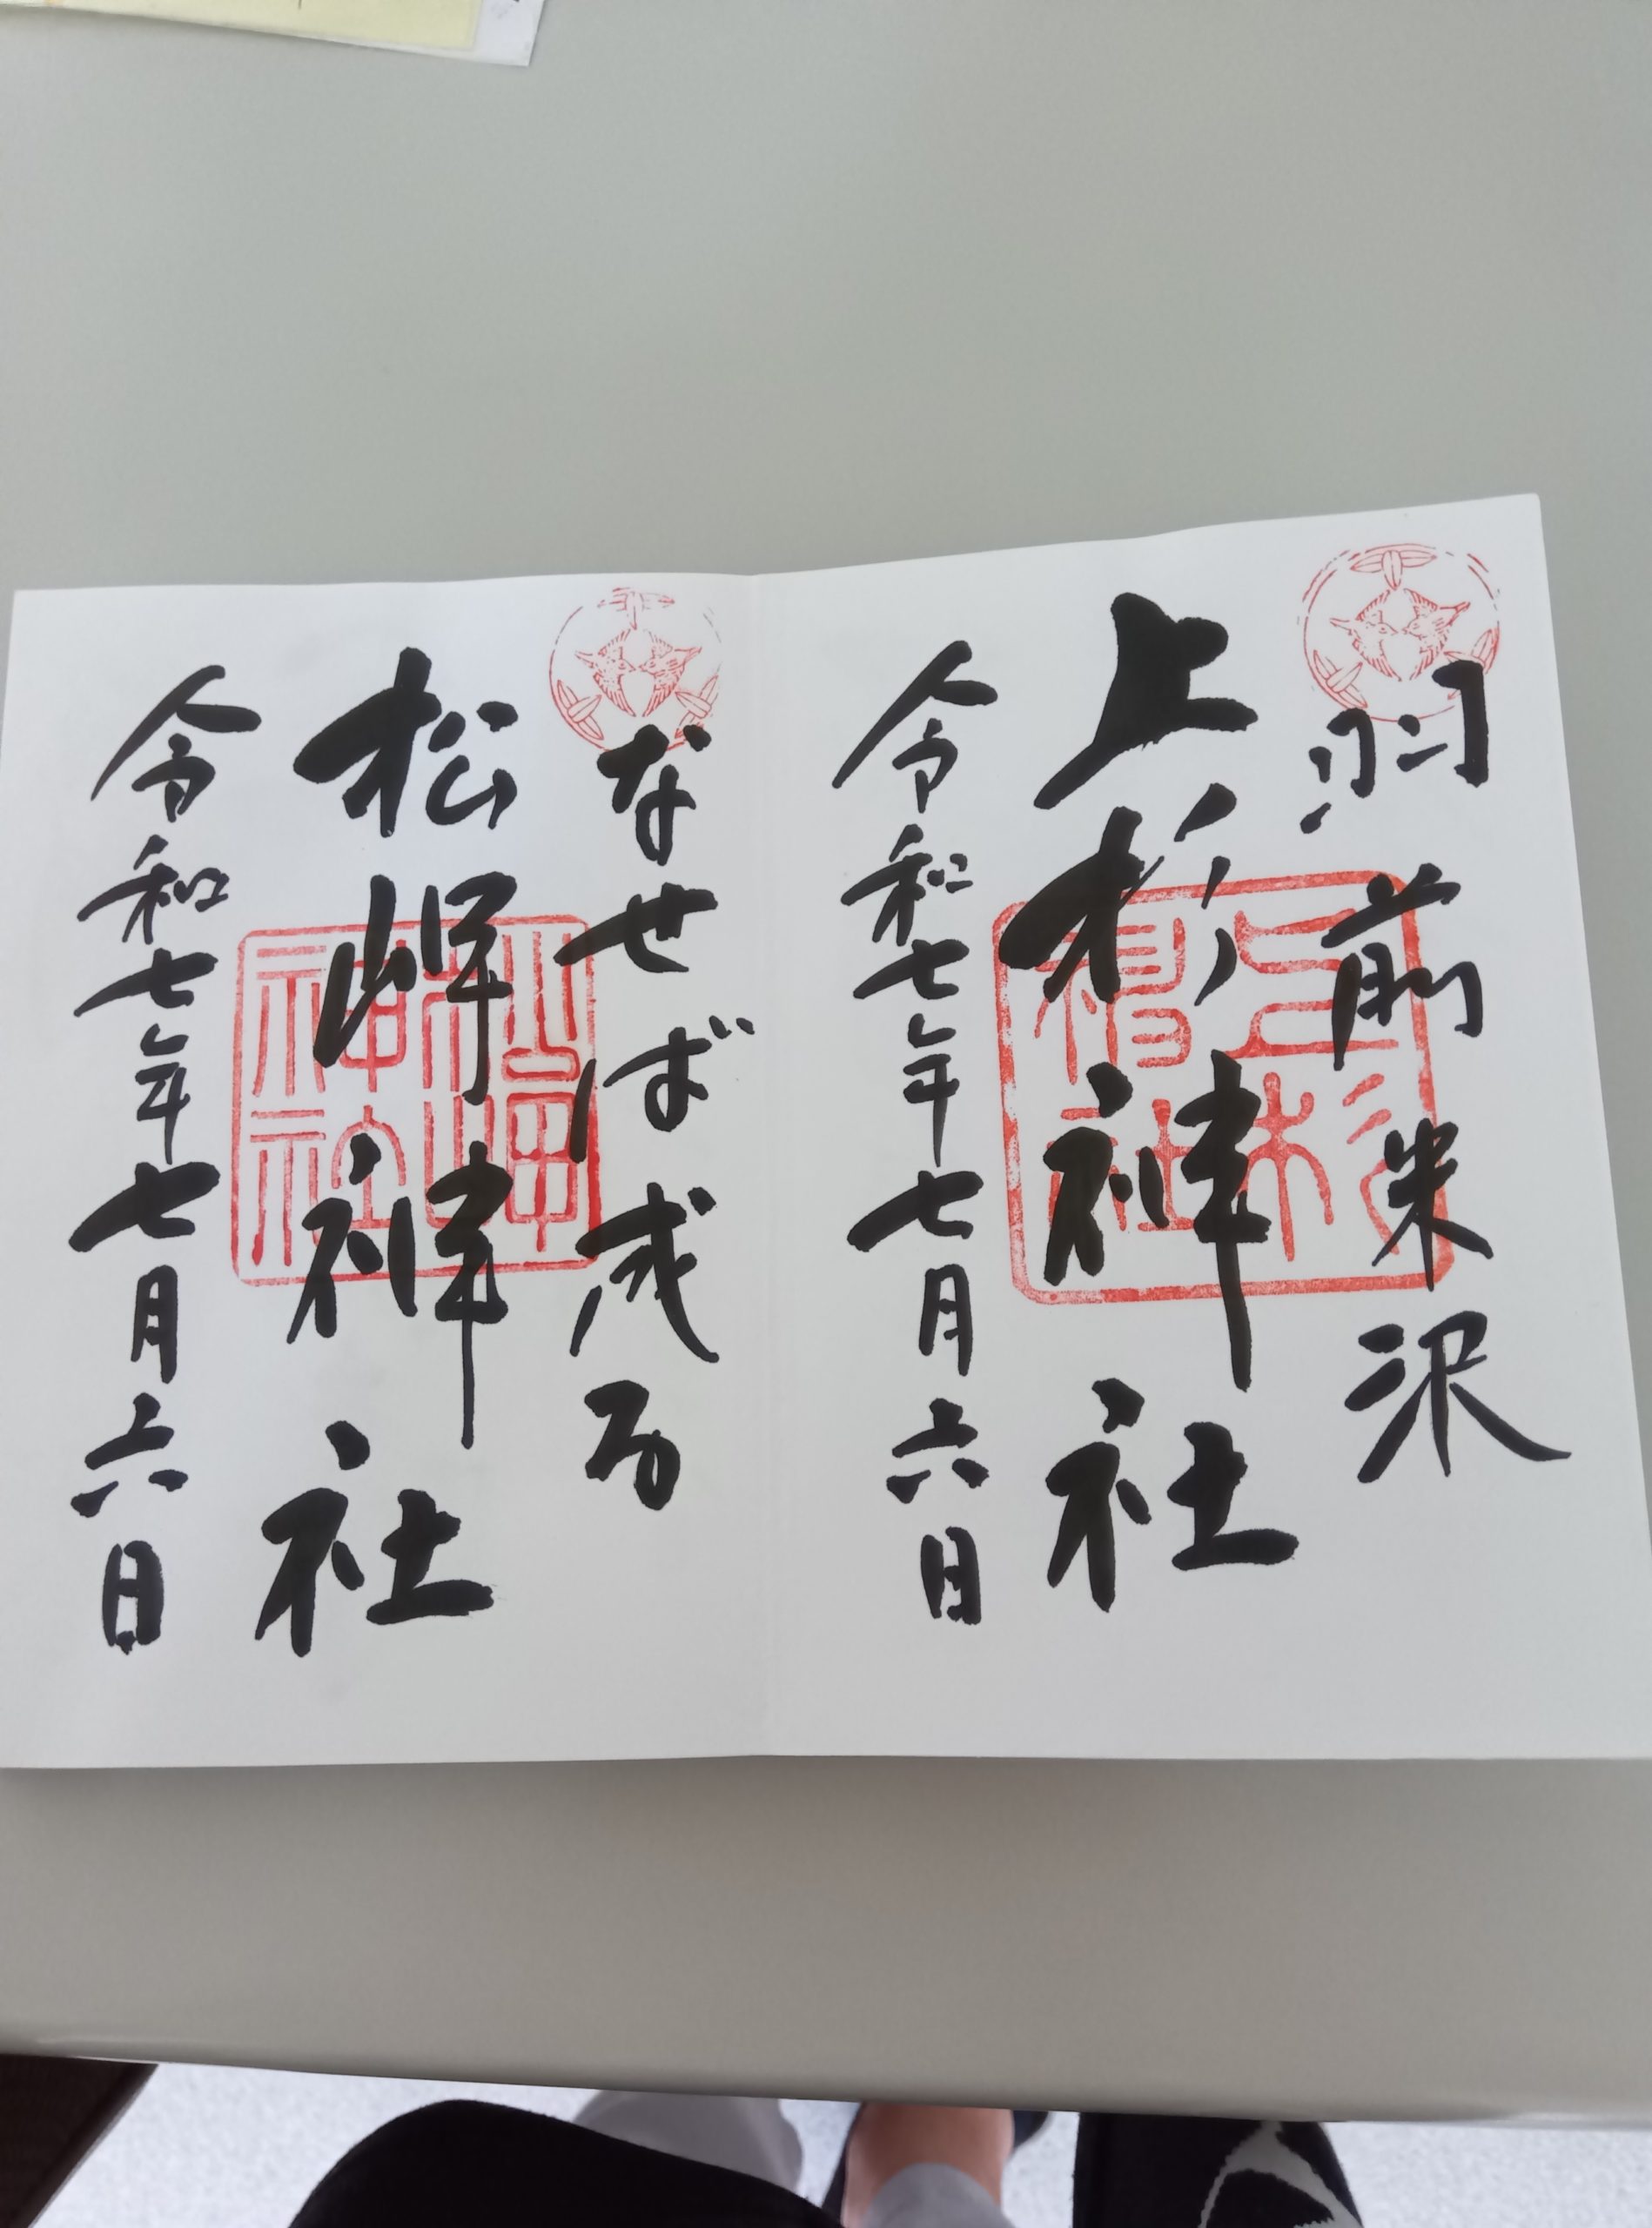 羽前米沢
上杉神社
令和七年七月六日
なせば成る
松岬神社
令和七年七月六日
上杉神社
松岬神社